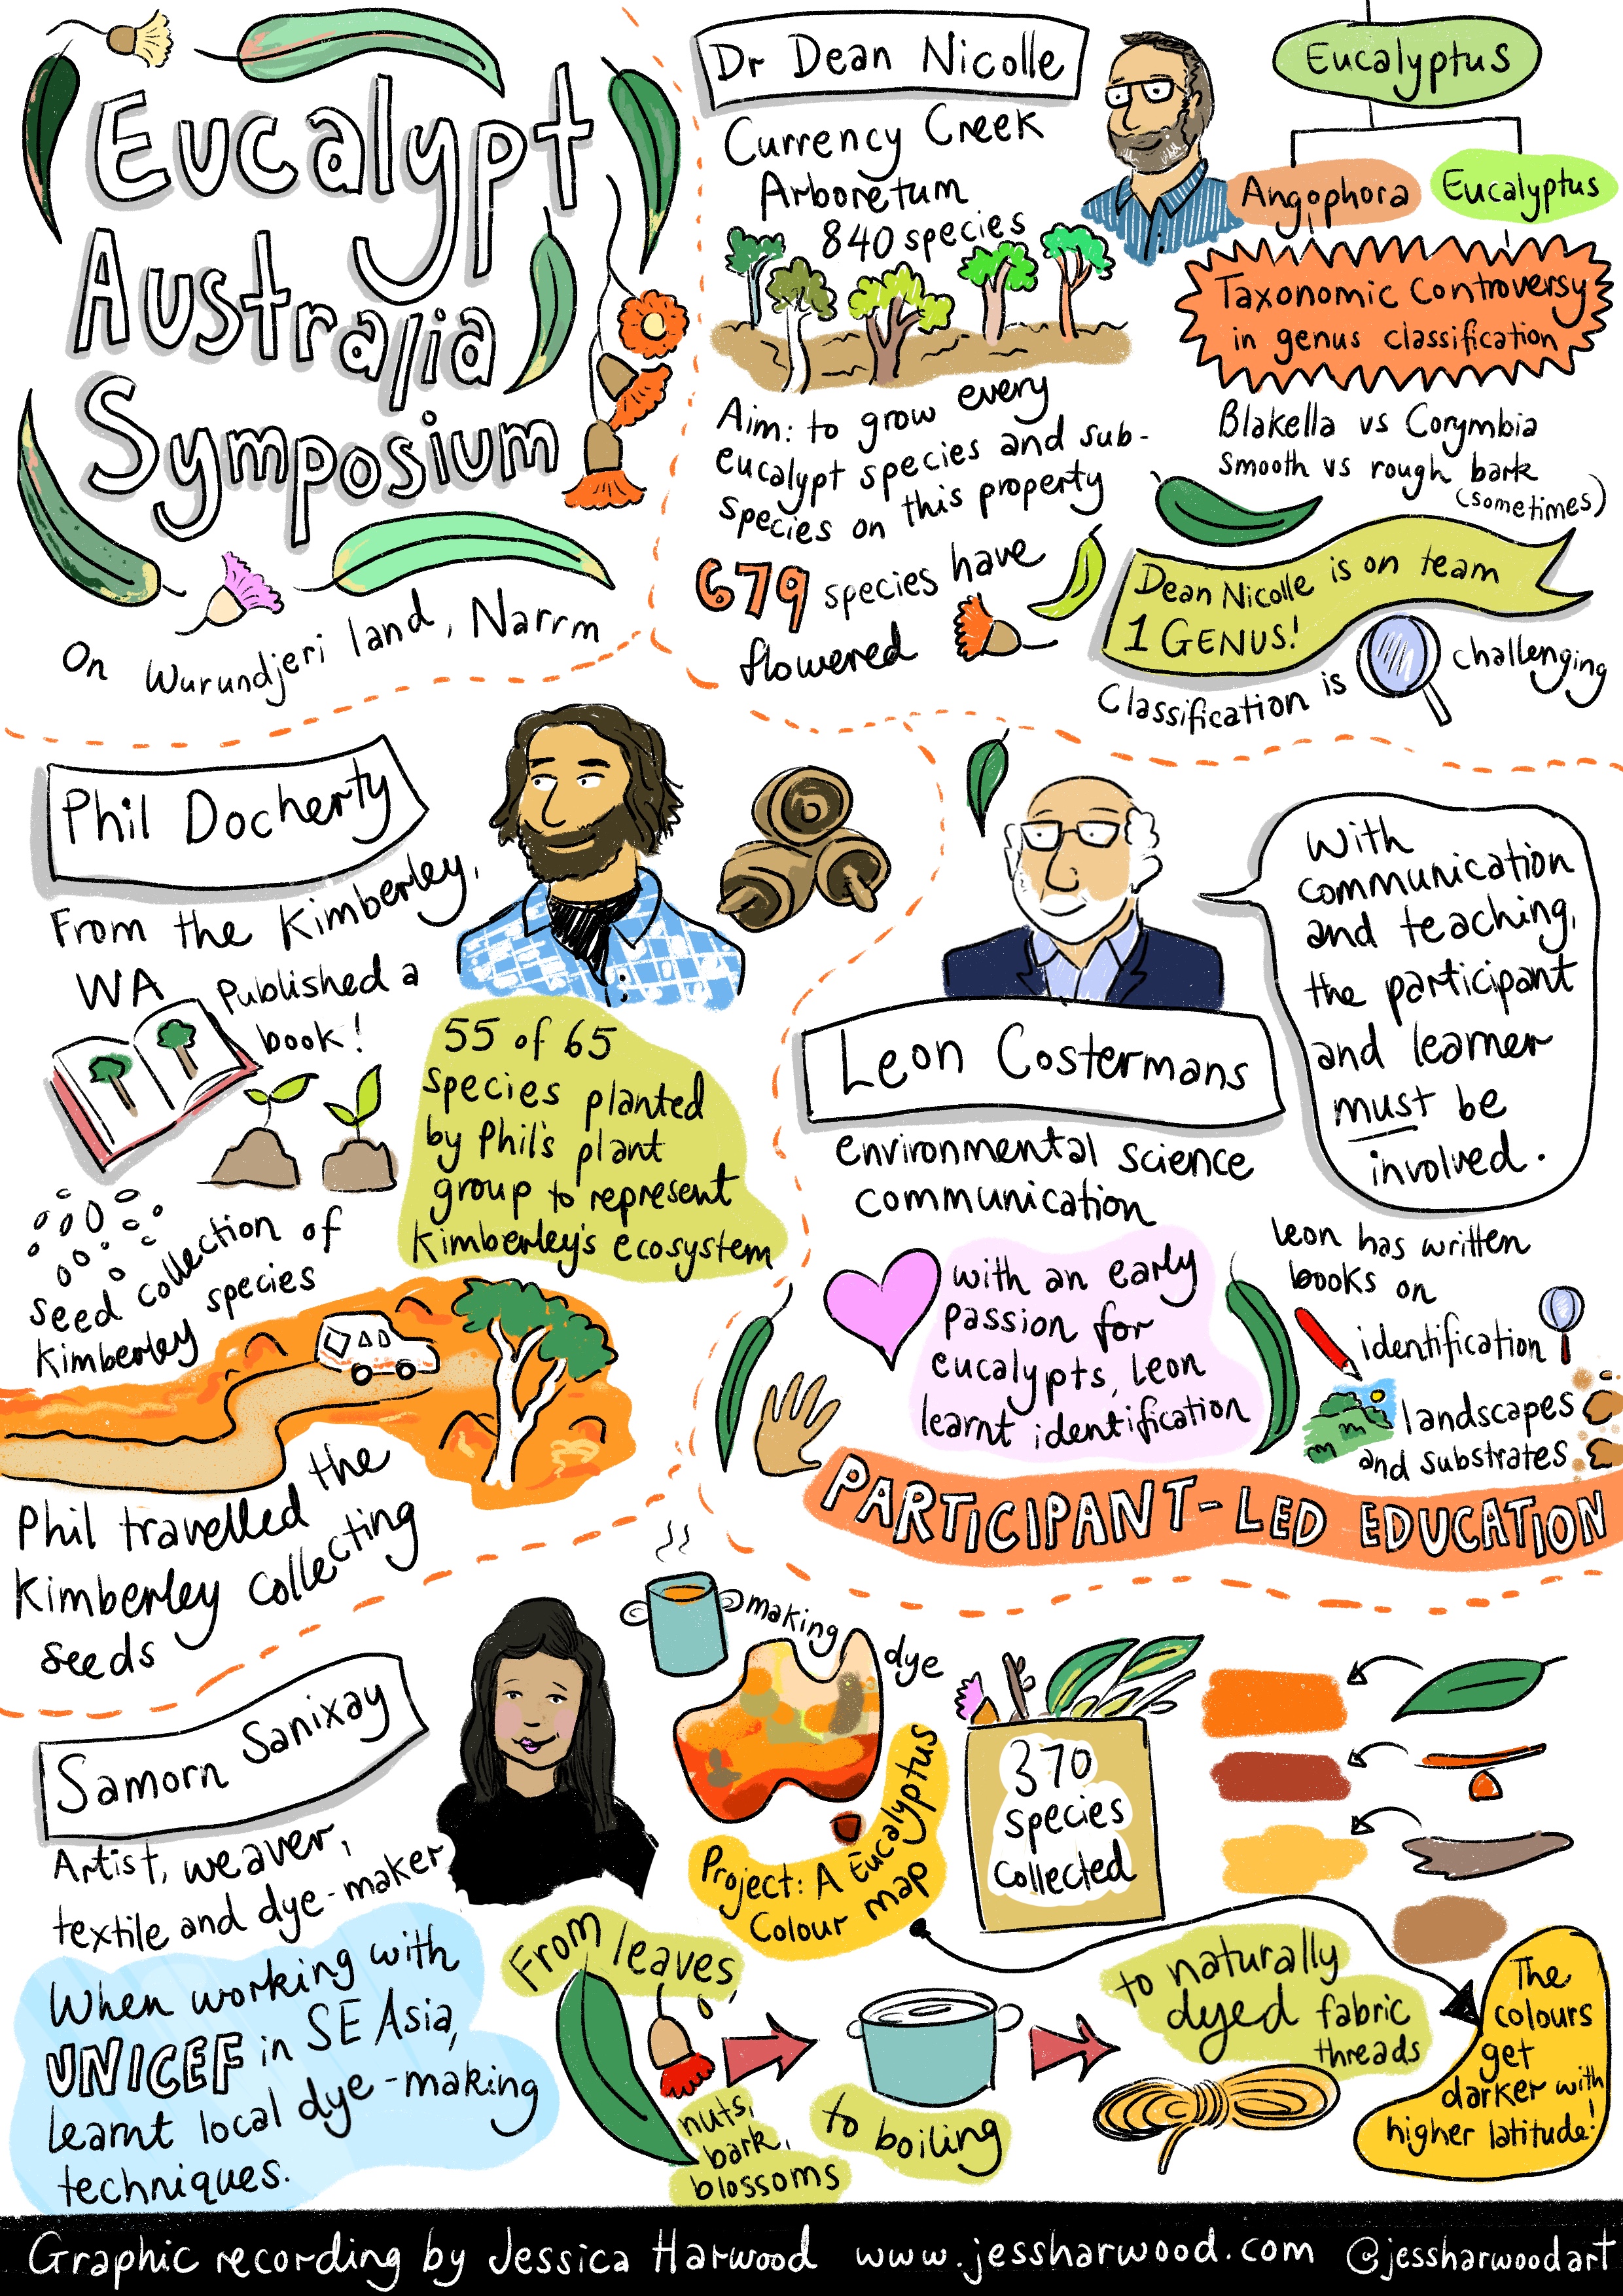 Eucalypt
Australia
Symposium
On Wurundjeri land, Narrm
Dr Dean Nicolle
Currency Creek
Arboretum
840 species
Aim: to grow every
eucalypt species and sub-
species on this property
679 species have
flowered
Eucalyptus
Angophora
Eucalyptus
Taxonomic Controversy
in genus classification
Blakella vs Corymbia
Smooth vs rough bark
(sometimes)
Dean Nicolle is on team
1 GENUS!
Classification is challenging
Phil Docherty
From the Kimberley,
WA
Published a
book!
55 of 65
species planted
by Phil's plant
group to represent
Kimberley's ecosystem
Seed collection of
Kimberley species
Phil travelled the
Kimberley collecting
seeds
With
communication
and teaching,
the participant
and learner
must be
involved.
Leon Costermans
environmental science
communication
with an early
passion for
eucalypts, Leon
learnt identification
Leon has written
books on
identification
landscapes
and substrates
PARTICIPANT-LED EDUCATION
Samorn Sanixay
Artist, weaver,
textile and dye-maker
When working with
UNICEF in SE Asia,
learnt local dye-making
techniques.
making dye
Project: A Eucalyptus
Colour map
370
species
collected
From leaves
nuts,
bark,
blossoms
to boiling
to naturally
dyed fabric
threads
The
colours
get
darker with
higher latitude!
Graphic recording by Jessica Harwood www.jessharwood.com @jessharwoodart